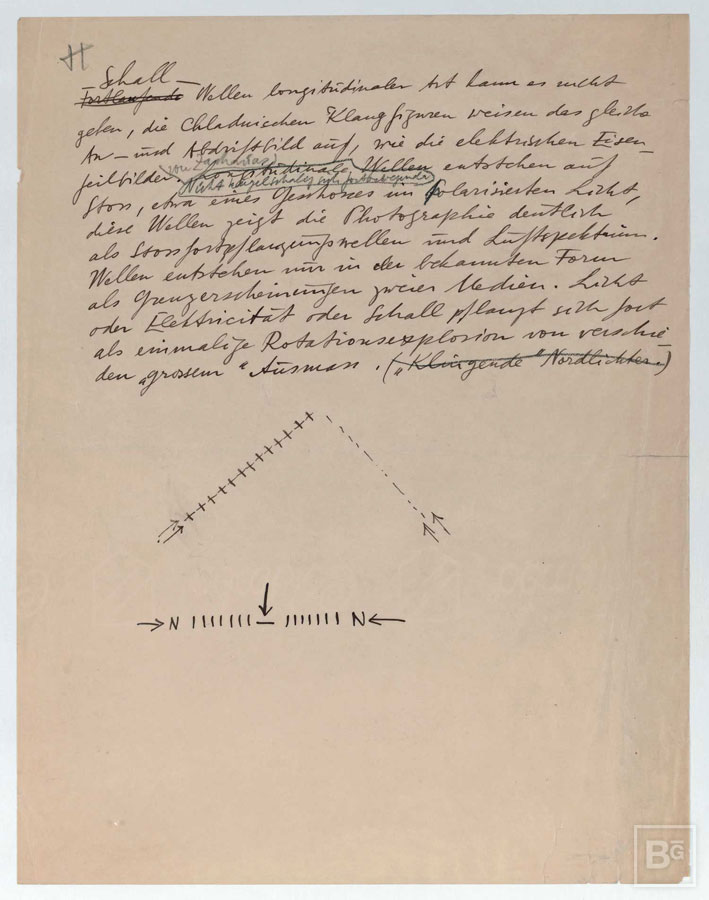 H
Schall –
Fortlaufende Wellen longitudinaler Art kann es nicht
geben, die Chladnischen Klangfiguren weisen das gleiche
An – und Abdriftbild auf, wie die elektrischen Eisen-
feilbilder. Longitudinale Wellen entstehen auf
Nicht
Stoss, etwa eines Geschosses im polarisierten Licht,
diese Wellen zeigt die Photographie deutlich
als Stossfortpflanzungswellen und Luftspektrum.
Wellen entstehen nur in der bekannten Form
als Grenzerscheinungen zweier Medien. Licht
oder Elektricität oder Schall pflanzt sich fort
als einmalige Rotationsexplosion von verschie
den „grossem“ Ausmass. („Klingende“ Nordlichter.)
N N
BG